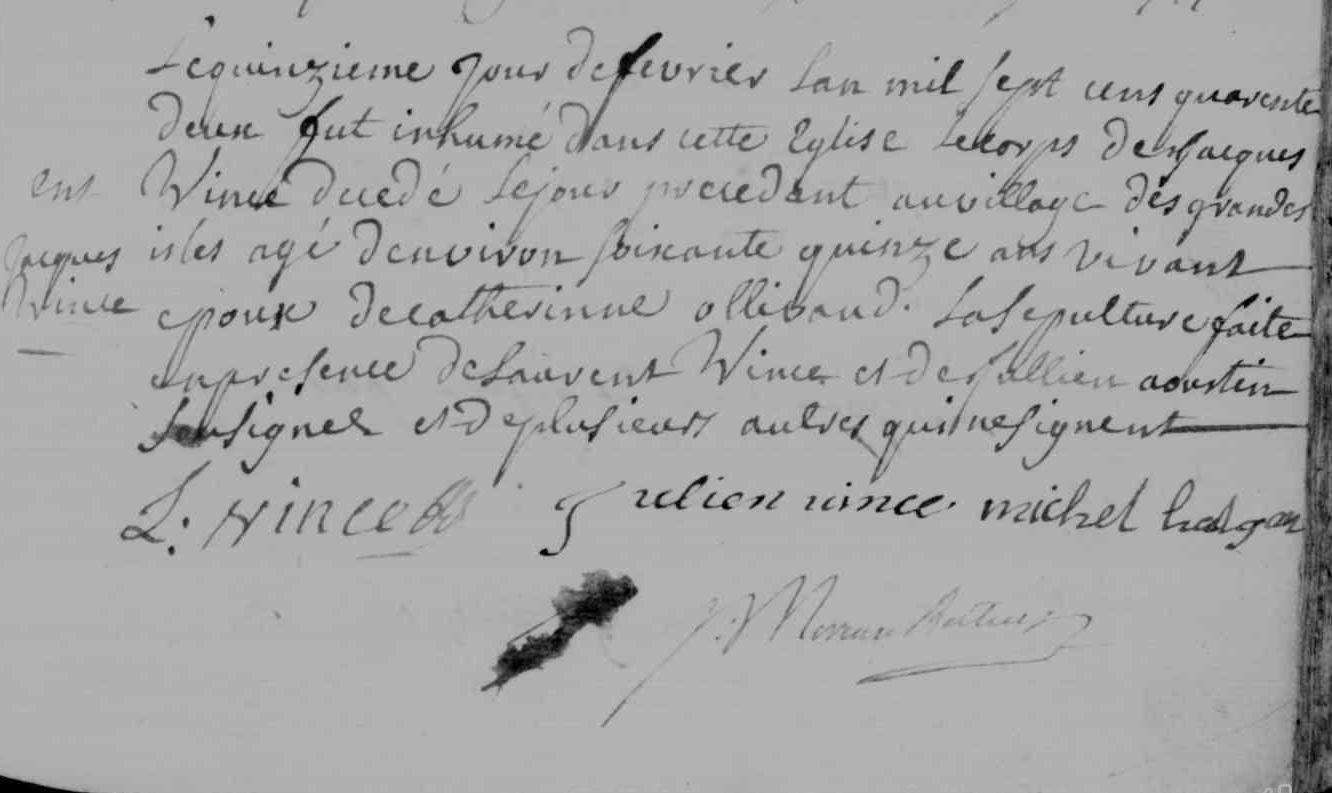 Lequinzieme jour defevrier Lan mil sept cens quarente
deux fut inhumé dans cette Eglise Lecorps de Jacques
ent Wince decedé Lejour precedent auvillage des grandes
Jacques isles agé denviron soixante quinze ans vivant
Wince epoux decatherinne ollivaud. La sepulture faite
enpresence deLaurent Wince et de Jullien aoustin
Sousignes et deplusieurs autres quinesignent
L. Vince Julien vince. michel halgan
J. Moreau Recteur